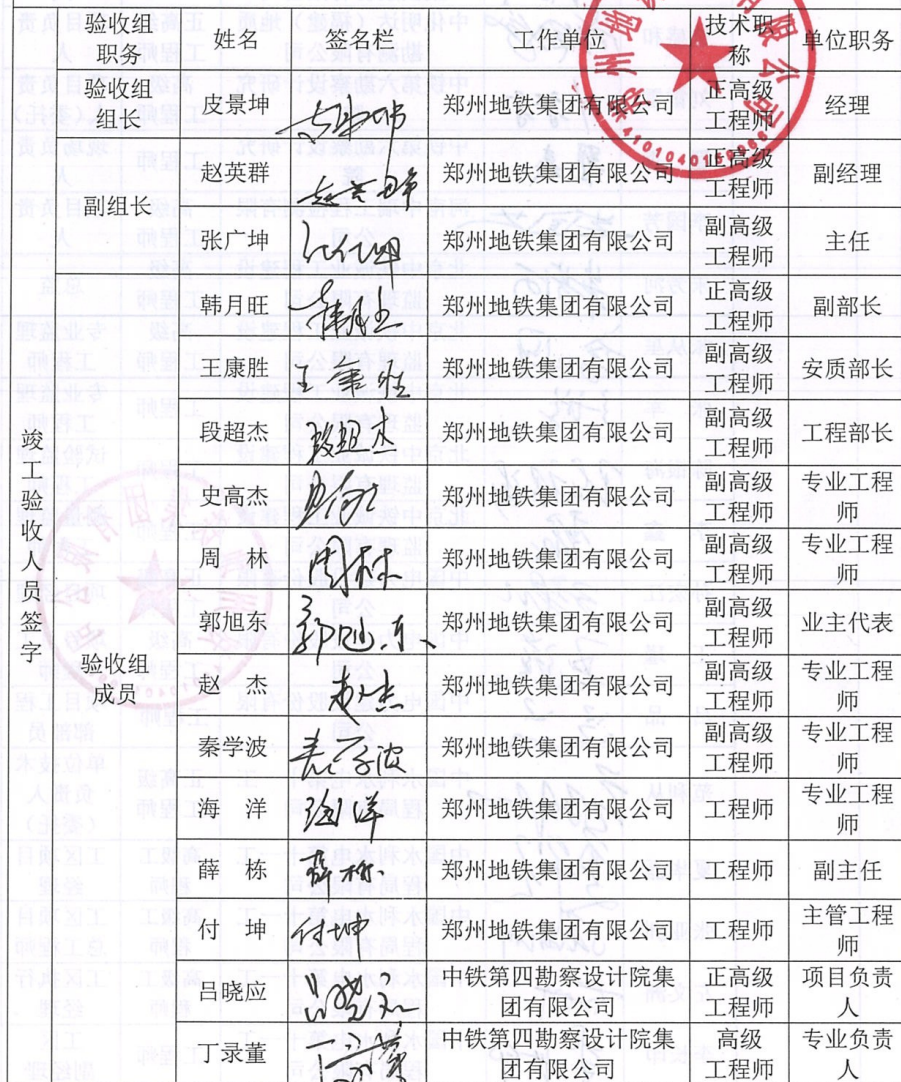 验收组
职务 姓名 签名栏 工作单位 技术职
称 单位职务
竣工验收人员签字
验收组
组长 皮景坤 郑州地铁集团有限公司 正高级
工程师 经理
副组长
赵英群 郑州地铁集团有限公司 正高级
工程师 副经理
张广坤 郑州地铁集团有限公司 副高级
工程师 主任
验收组
成员
韩月旺 郑州地铁集团有限公司 正高级
工程师 副部长
王康胜 王康胜 郑州地铁集团有限公司 副高级
工程师 安质部长
段超杰 段超杰 郑州地铁集团有限公司 副高级
工程师 工程部长
史高杰 郑州地铁集团有限公司 副高级
工程师 专业工程
师
周 林 周林 郑州地铁集团有限公司 副高级
工程师 专业工程
师
郭旭东 郭旭东 郑州地铁集团有限公司 副高级
工程师 业主代表
赵 杰 赵杰 郑州地铁集团有限公司 副高级
工程师 专业工程
师
秦学波 秦学波 郑州地铁集团有限公司 副高级
工程师 专业工程
师
海 洋 海洋 郑州地铁集团有限公司 工程师 专业工程
师
薛 栋 薛栋 郑州地铁集团有限公司 工程师 副主任
付 坤 付坤 郑州地铁集团有限公司 工程师 主管工程
师
吕晓应 吕晓应 中铁第四勘察设计院集
团有限公司 正高级
工程师 项目负责
人
丁录董 中铁第四勘察设计院集
团有限公司 高级
工程师 专业负责
人